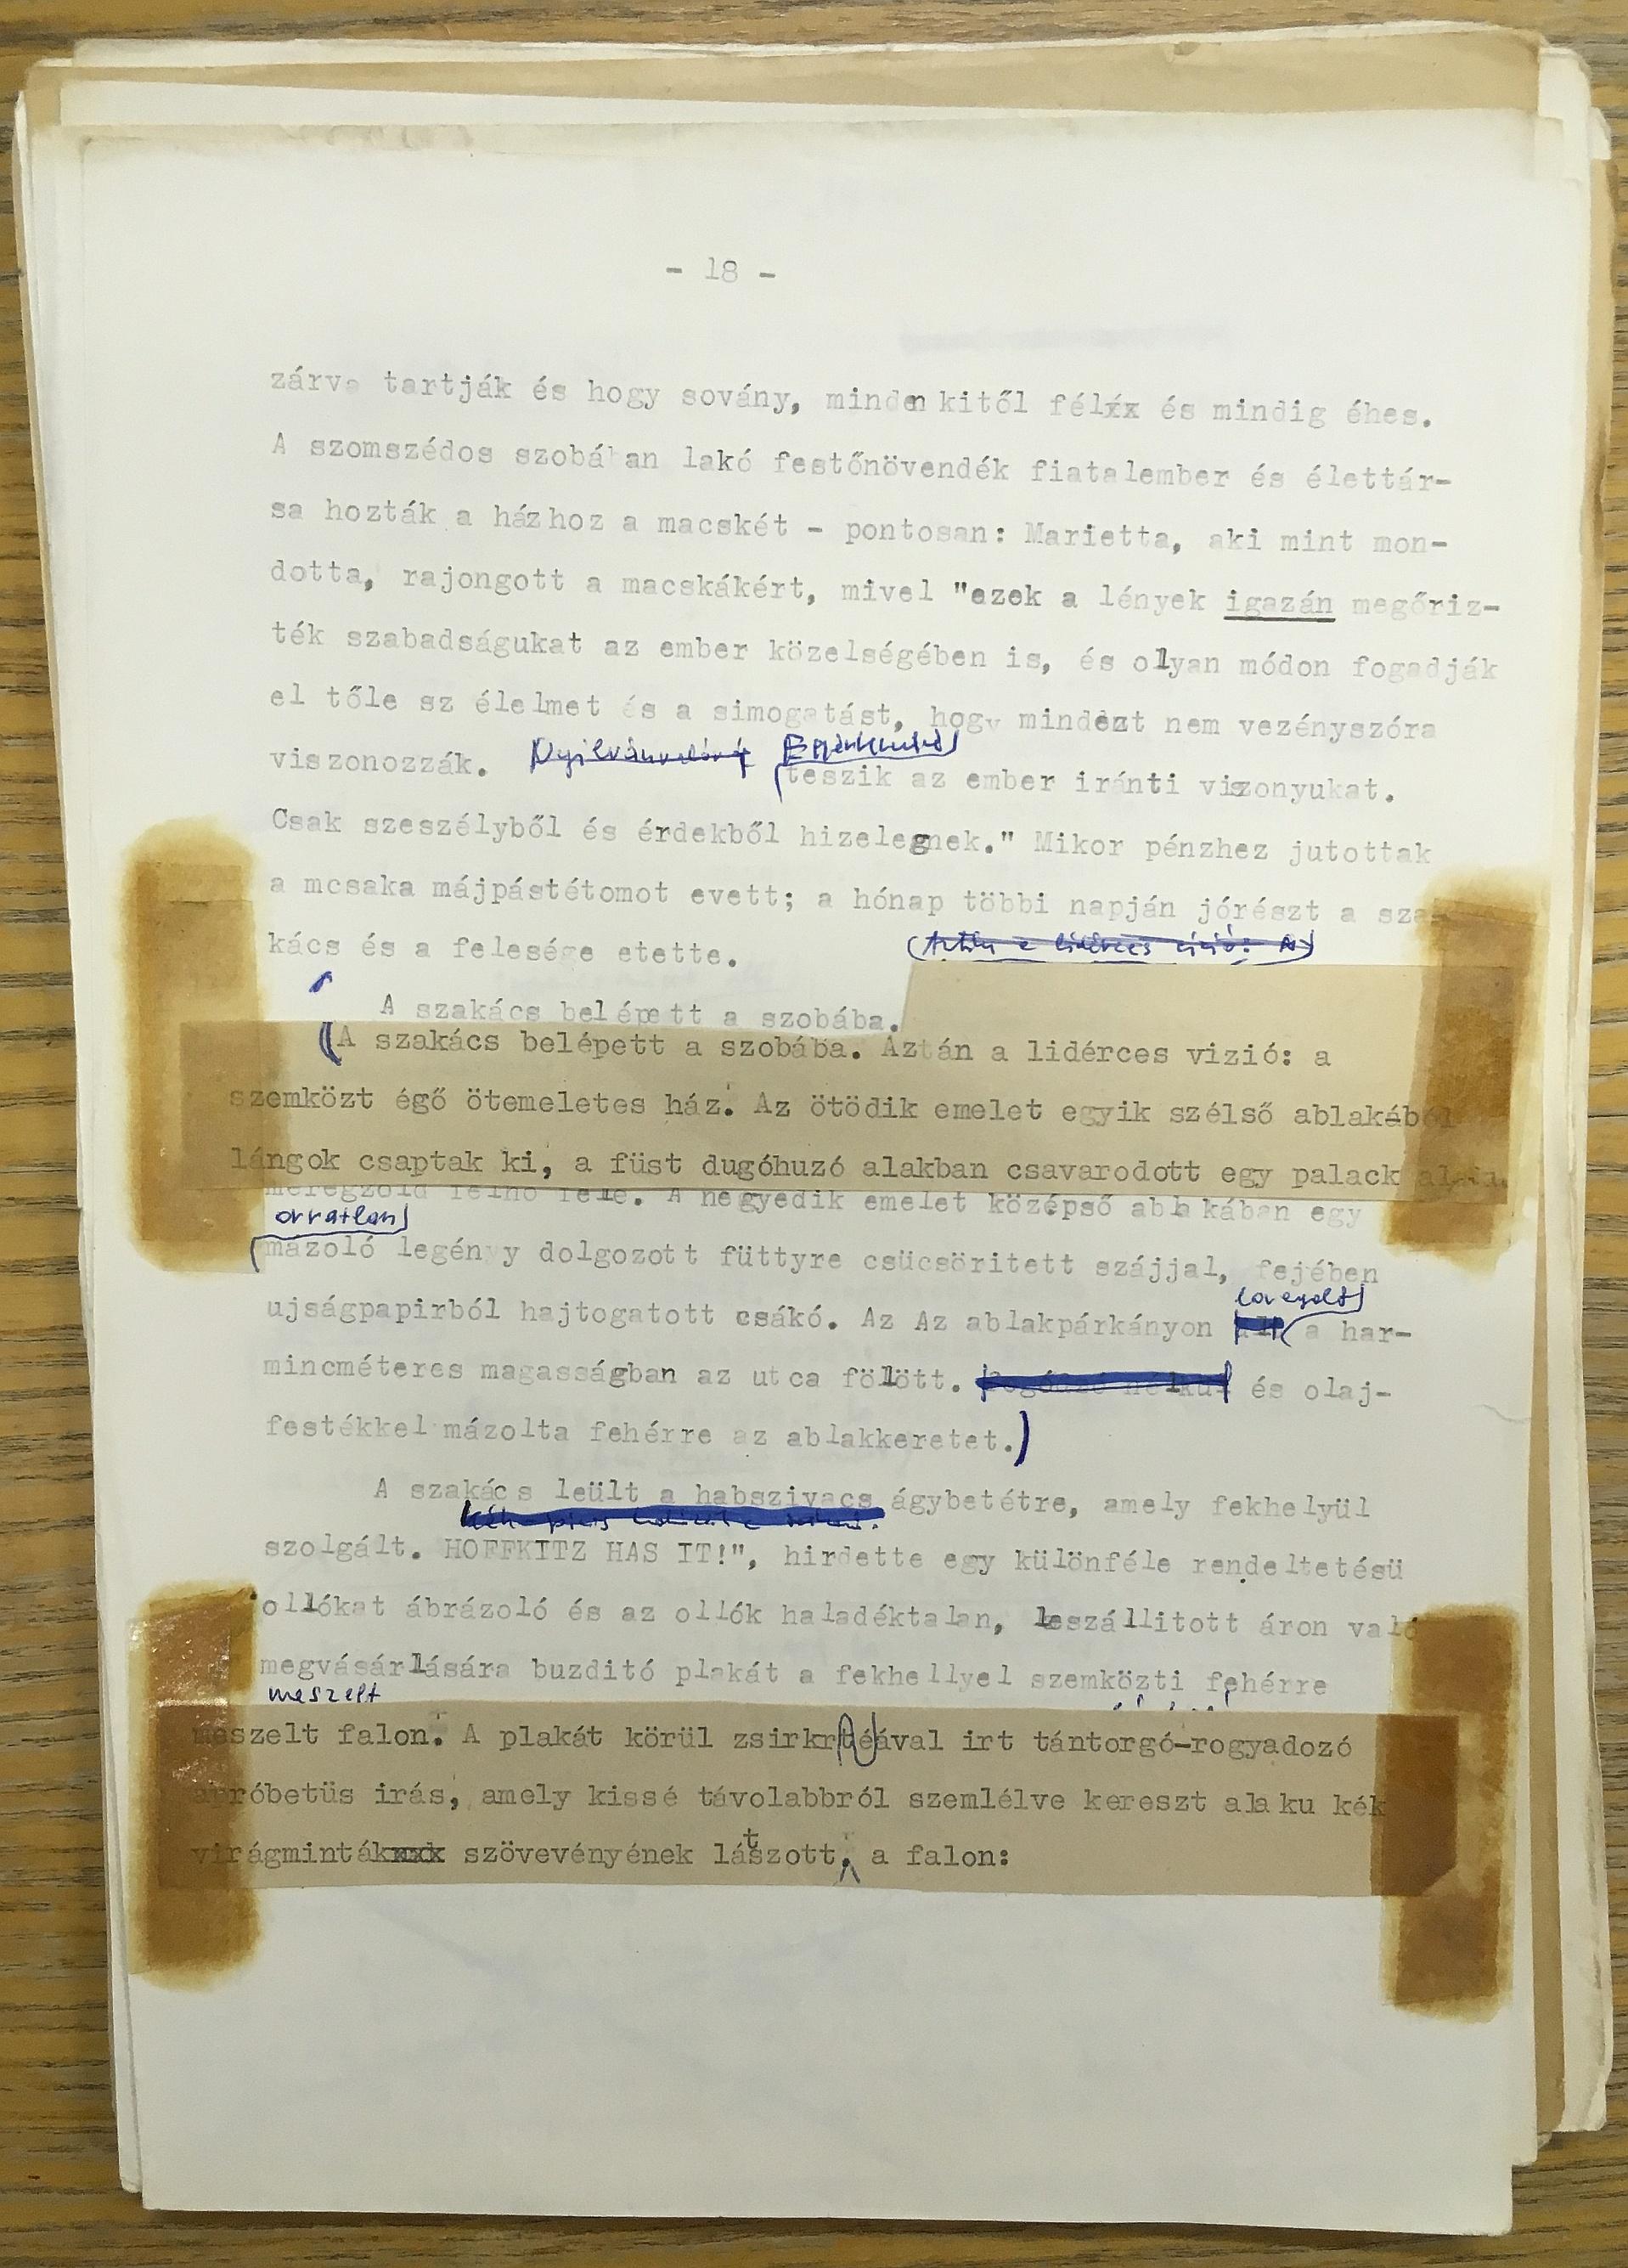 - 18 -
zárva tartják és hogy sovány, mindenkitől félxx és mindig éhes.
A szomszédos szobában lakó festőnövendék fiatalember és élettár-
sa hozták a házhoz a macskét - pontosan: Marietta, aki mint mon-
dotta, rajongott a macskákért, mivel "ezek a lények igazán megőriz-
ték szabadságukat az ember közelségében is, és olyan módon fogadják
el tőle sz élelmet és a simogatást, hogy mindezt nem vezényszóra
Nyilvánvalóvá
viszonozzák. teszik az ember iránti viszonyukat.
Csak szeszélyből és érdekből hizelegnek." Mikor pénzhez jutottak
a mcsaka májpástétomot evett; a hónap többi napján jórészt a sza-
kács és a felesége etette.
(Aztán a lidérces vizió: a)
A szakács belépett a szobába.
(A szakács belépett a szobába. Aztán a lidérces vizió: a
szemközt égő ötemeletes ház. Az ötödik emelet egyik szélső ablakából
lángok csaptak ki, a füst dugóhuzó alakban csavarodott egy palack alaku
méregzöld felhő felé. A negyedik emelet középső ablakában egy
orratlan
mázoló legény dolgozott füttyre csücsöritett szájjal, fejében
ujságpapirból hajtogatott csákó. Az Az ablakpárkányon
lovagolt
ült a har-
mincméteres magasságban az utca fölött. nélkül és olaj-
festékkel mázolta fehérre az ablakkeretet.)
A szakács leült a habszivacs ágybetétre, amely fekhelyül
szolgált. HOFFKITZ HAS IT!", hirdette egy különféle rendeltetésü
ollókat ábrázoló és az ollók haladéktalan, leszállitott áron való
megvásárlására buzditó plakát a fekhellyel szemközti fehérre
meszelt
meszelt falon. A plakát körül zsirkrétával irt tántorgó-rogyadozó
apróbetüs irás, amely kissé távolabbról szemlélve kereszt alaku kék
virágmintákxxx szövevényének látszott, a falon: